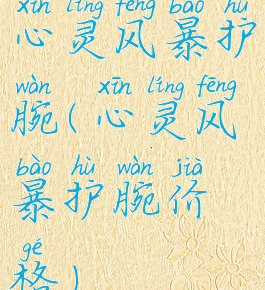 xīn líng fēng bào hù
心灵风暴护
wàn xīn líng fēng
腕(心灵风
bào hù wàn jià
暴护腕价
gé
格)